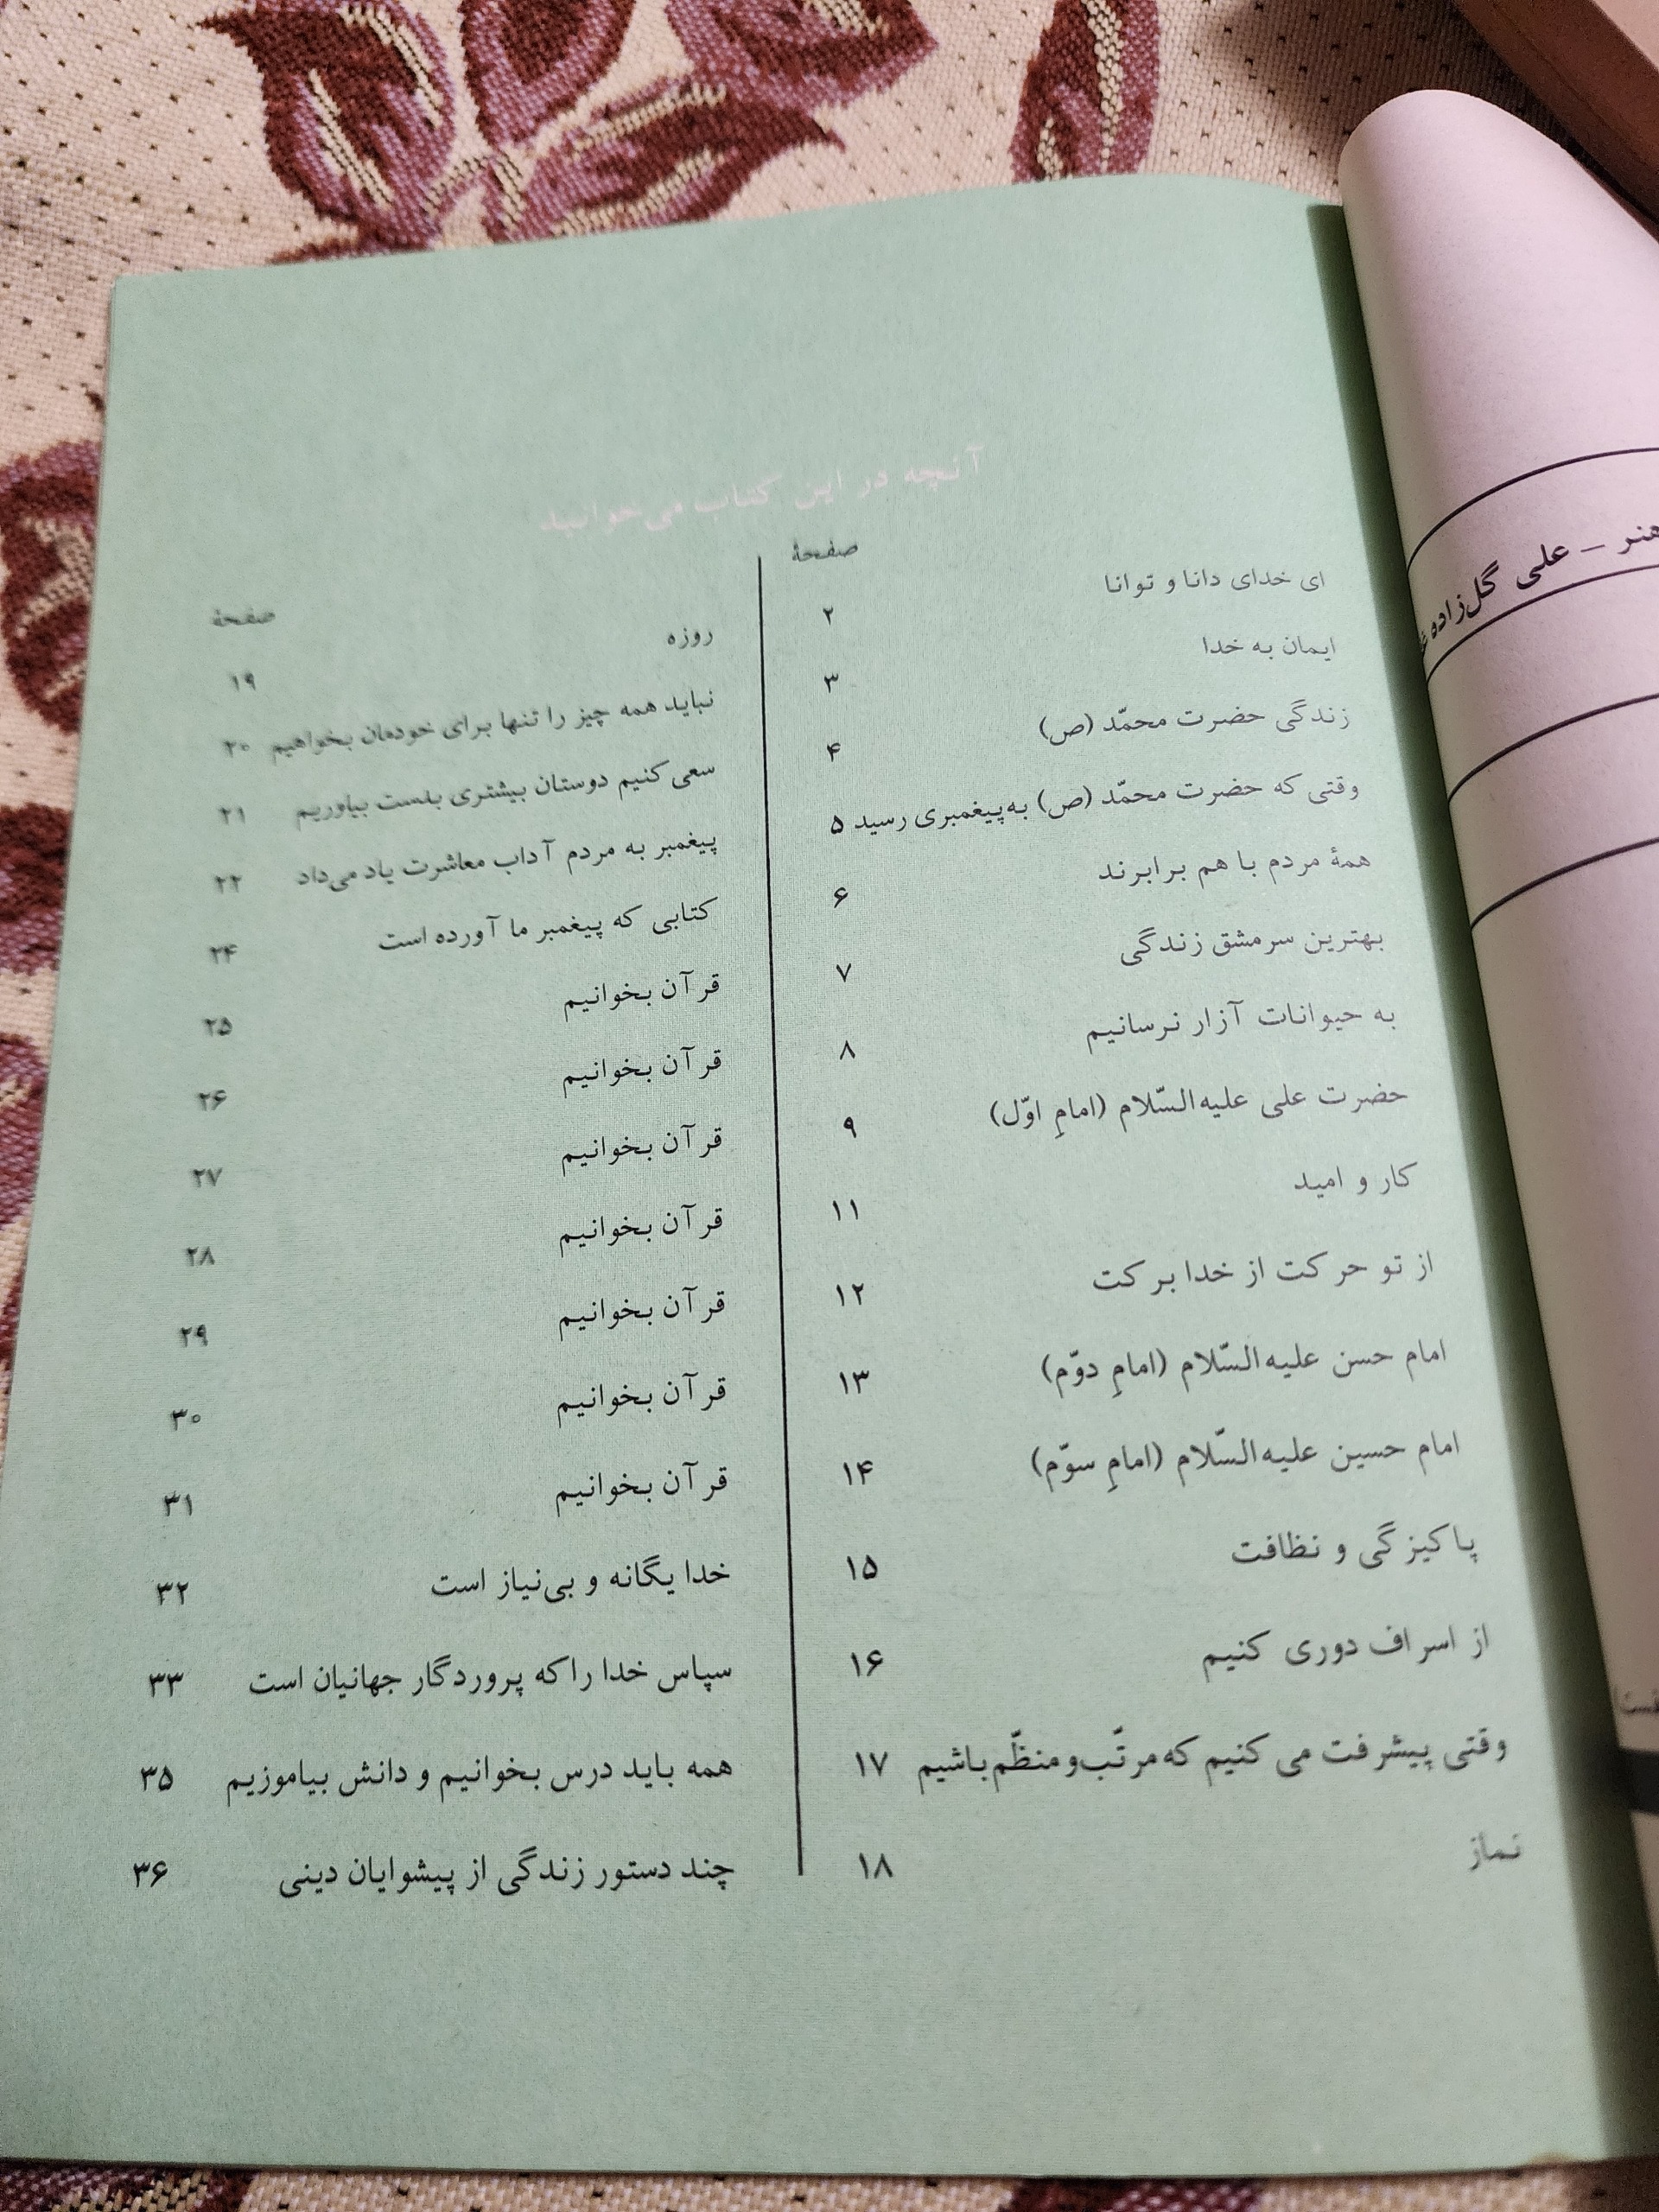 آنچه در این کتاب می‌خوانید
صفحهٔ
ای خدای دانا و توانا ۲
ایمان به خدا ۳
زندگی حضرت محمّد (ص) ۴
وقتی که حضرت محمّد (ص) به‌پیغمبری رسید ۵
همهٔ مردم با هم برابرند ۶
بهترین سرمشق زندگی ۷
به حیوانات آزار نرسانیم ۸
حضرت علی علیه‌السّلام (امامِ اوّل) ۹
کار و امید ۱۱
از تو حرکت از خدا برکت ۱۲
امام حسن علیه‌السّلام (امامِ دوّم) ۱۳
امام حسین علیه‌السّلام (امامِ سوّم) ۱۴
پاکیزگی و نظافت ۱۵
از اسراف دوری کنیم ۱۶
وقتی پیشرفت می کنیم که مرتّب و منظّم باشیم ۱۷
نماز ۱۸
صفحهٔ
روزه ۱۹
نباید همه چیز را تنها برای خودمان بخواهیم ۲۰
سعی کنیم دوستان بیشتری بدست بیاوریم ۲۱
پیغمبر به مردم آداب معاشرت یاد می‌داد ۲۲
کتابی که پیغمبر ما آورده است ۲۴
قرآن بخوانیم ۲۵
قرآن بخوانیم ۲۶
قرآن بخوانیم ۲۷
قرآن بخوانیم ۲۸
قرآن بخوانیم ۲۹
قرآن بخوانیم ۳۰
قرآن بخوانیم ۳۱
خدا یگانه و بی‌نیاز است ۳۲
سپاس خدا را که پروردگار جهانیان است ۳۳
همه باید درس بخوانیم و دانش بیاموزیم ۳۵
چند دستور زندگی از پیشوایان دینی ۳۶
هنر – علی گل‌زاده